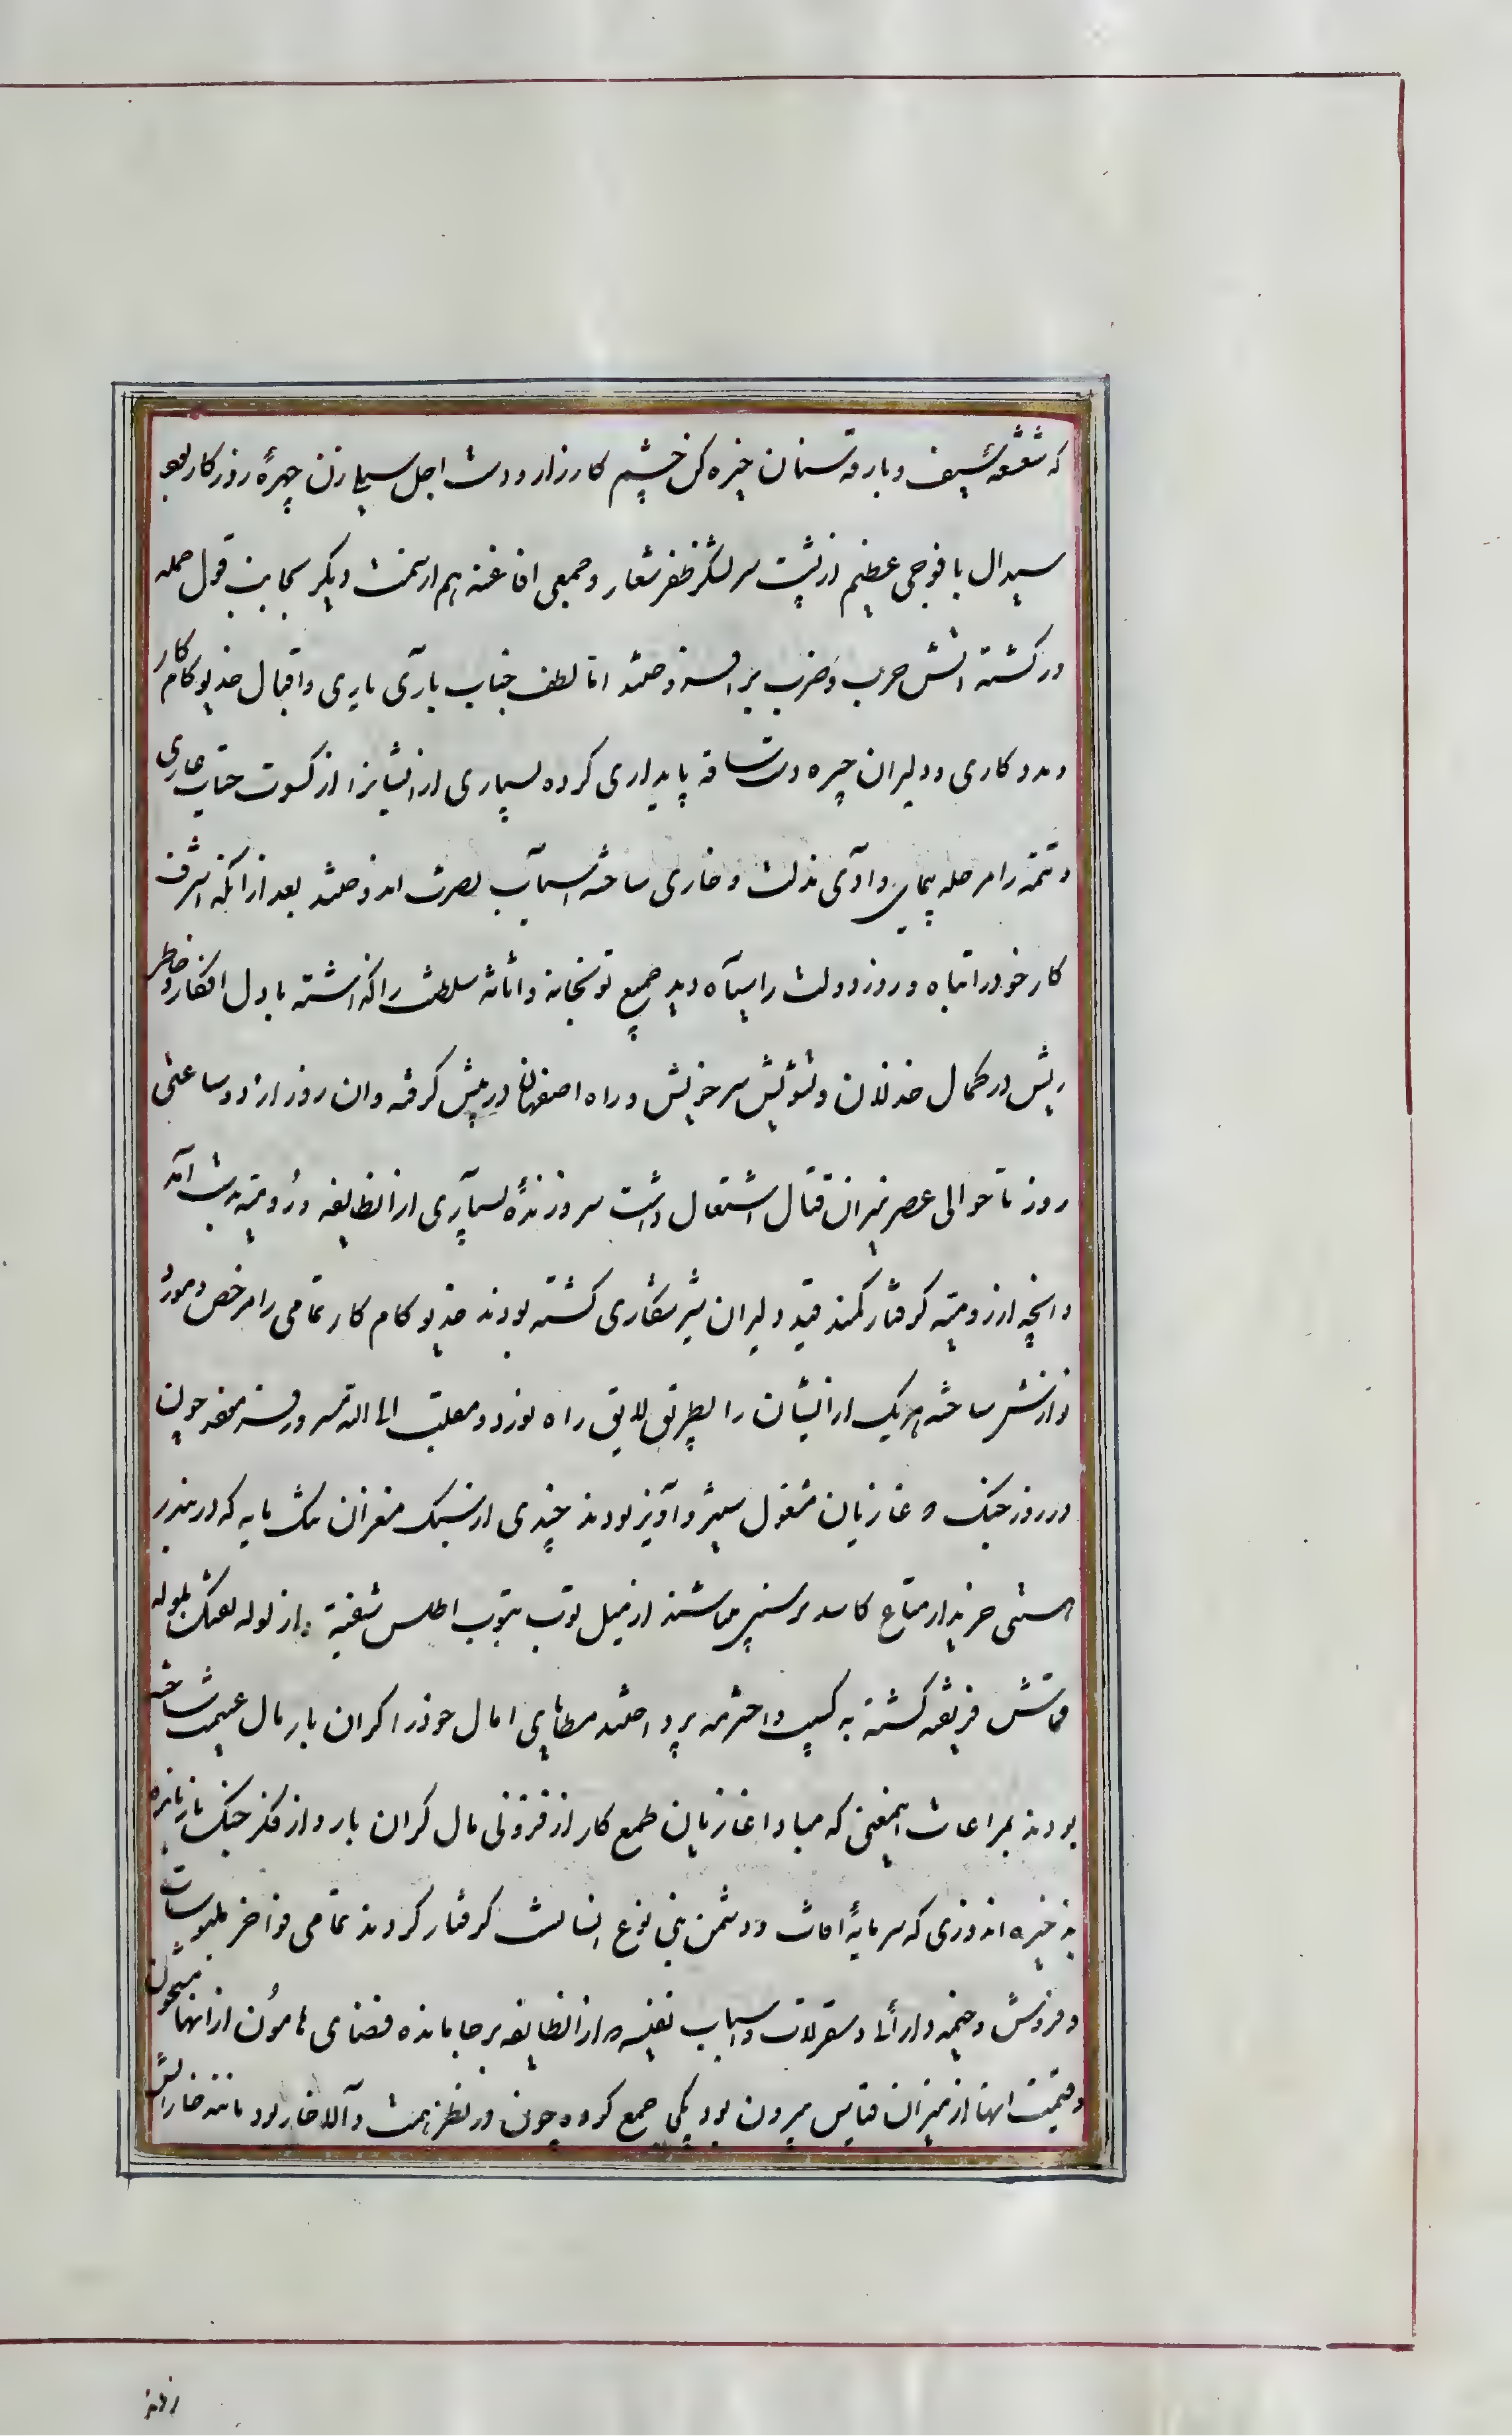 که شعشعه سیف و بارقه سنان خیره کن چشم کارزار و دست اجل سیلی زن چهرهٔ روزکار بود
سیدال با فوجی عظیم از پشت سر لشکر ظفر شعار و جمعی افاغنه هم از سمت دیکر بجانب قول حمله
ور کشته اتش حرب و ضرب بر افروختند اما لطف جناب باری یاری و اقبال خدیو کام کار
مدد کاری و دلیران چیره دست ساقه پایداری کرده بسیاری از ایشانرا از کسوت حیات عاری
و تتمه را مرحله پیمای وادی مذلت و خاری ساخته اسباب نصرت اندوختند بعد از انکه اشرف
کار خود را تباه و روز دولت را سیاه دید جمیع توپخانه و اثاثه سلطنت را کذاشته با دل افکار و خاطر
ریش در کمال خذلان و تشویش سر خویش و راه اصفهان در پیش کرفته و ان روز از دو ساعتی
روز تا حوالی عصر نیران قتال اشتعال داشت سر و زندهٔ بسیاری از انطایفه و رومیه بدست امد
و انچه از رومیه کرفتار کمند قید دلیران شیر شکاری کشته بودند خدیو کام کار تمامی را مرخص و مورد
نوازش ساخته هر یک از ایشان را بطریق لایق راه نورد و منقلب الی اهله مسرورا فرمود چون
در روز جنک که غازیان مشغول ستیز و آویز بودند چندی از سبک مغزان تنک مایه که در بندر
هستی خریدار متاع کاسد هر سنپر میباشند از میل توپ بتوپ اطلس شیفته و از لوله تفنک بلوله
قماش فریفته کشته به کسیب و اخترمه پرداخته مطایای امال خود را کران بار مال غنیمت ساخته
بودند بمراعات اینمعنی که مبادا غازیان طمع کار از فزونی مال کران بار و از فکر جنک باز مانده
بذخیره اندوزی که سرمایهٔ افات و دشمن بنی نوع انسانست کرفتار کردند تمامی فواخر ملبوسات
و فروش و خیمه دارائی و سقرلات و اسباب نفیسه که از انطایفه بر جا مانده فضای هامون از انها مشحون
و قیمت انها از میزان قیاس بیرون بود یکی جمع کرده چون در نظر همت والا خار بود مانند خار اتش